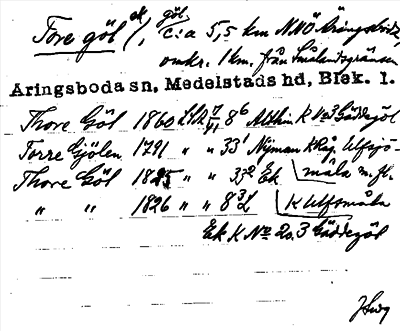 Tore göl ek/, göl,
c:a 5,5 km NNÖ Åryngsboda,
omkr. 1 km. från Smålandsgränsen
Aringsboda sn, Medelstads hd, Blek. l.
Thore Göl 1860 LSA 7/VI 8⁶ K Nº 3 Gäddegöl
Torre Gjölen 1791 " " 33¹ Nyman K Råg. Ulfsjö-
Thore Göl 1825 " " 33² Ek måla m. fl.
" " 1826 " " 8³ L K Ulfsmåla
Ek K Nº 2o. 3 Gäddegöl